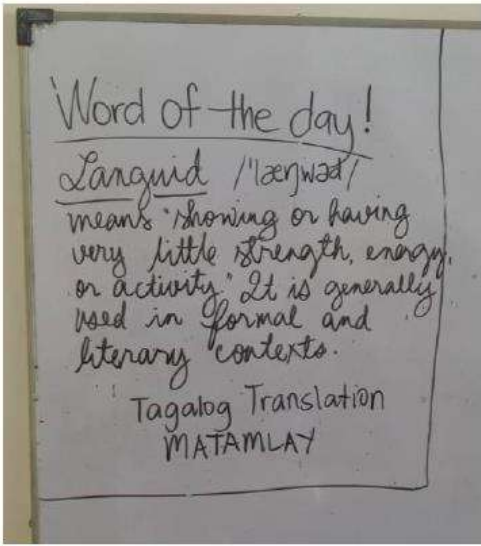 Word of the day!
Languid /ˈlæŋwəd/
means "showing or having
very little strength, energy,
or activity." It is generally
used in formal and
literary contexts.
Tagalog Translation
MATAMLAY